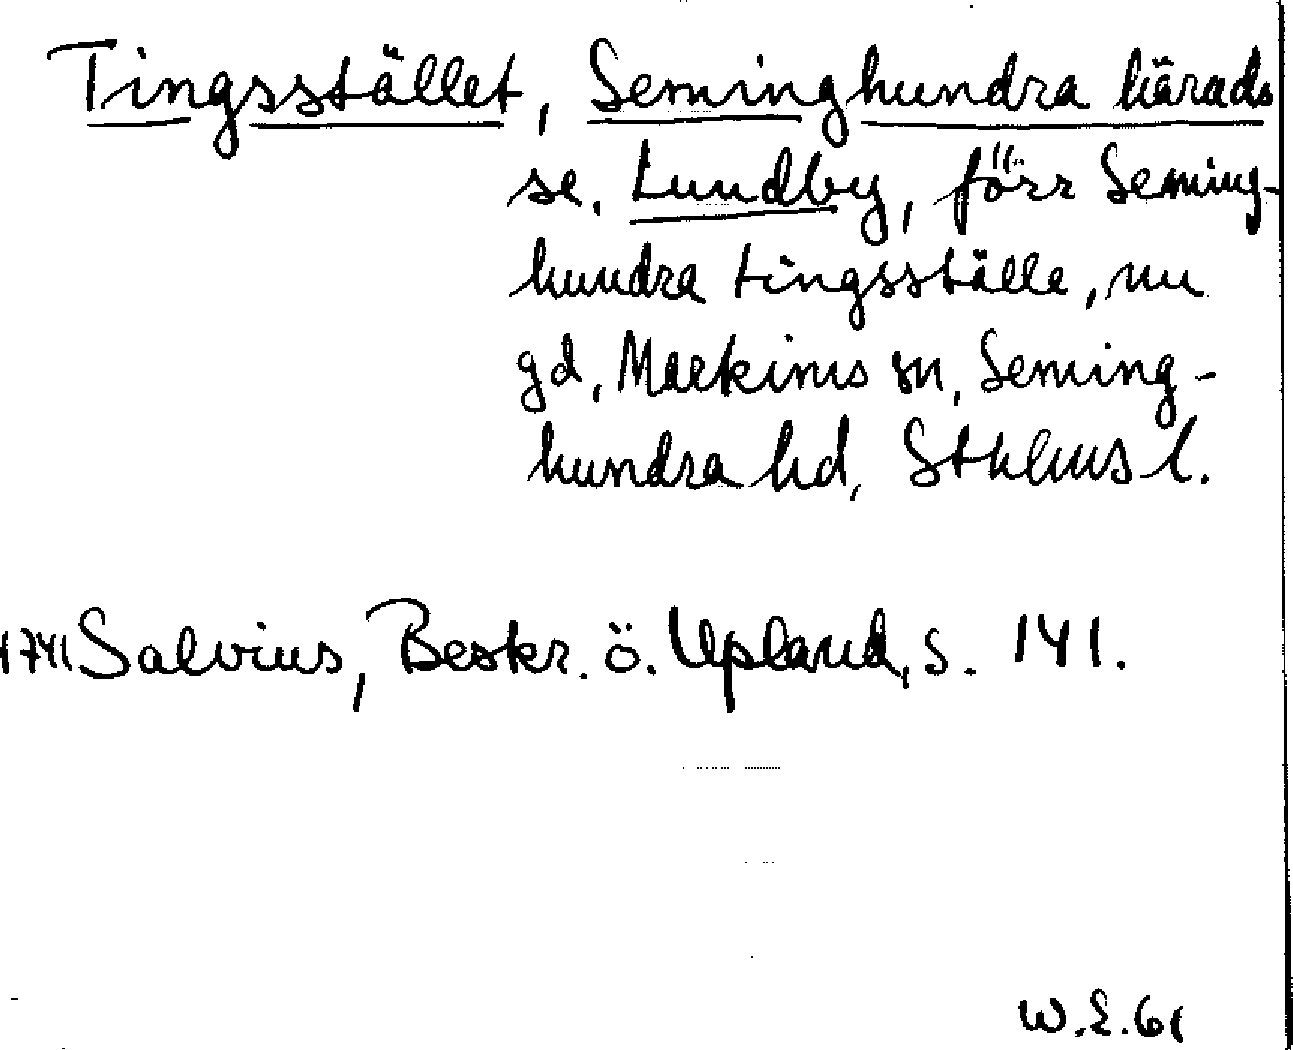 Tingsstället, Seminghundra härads
se. Lundby, förr Seming-
hundra tingsställe, nu
gd, Markims sn, Seming-
hundra hd, Sthlms l.
1741 Salvius, Beskr. ö. Upland, s. 141.
W.E.61